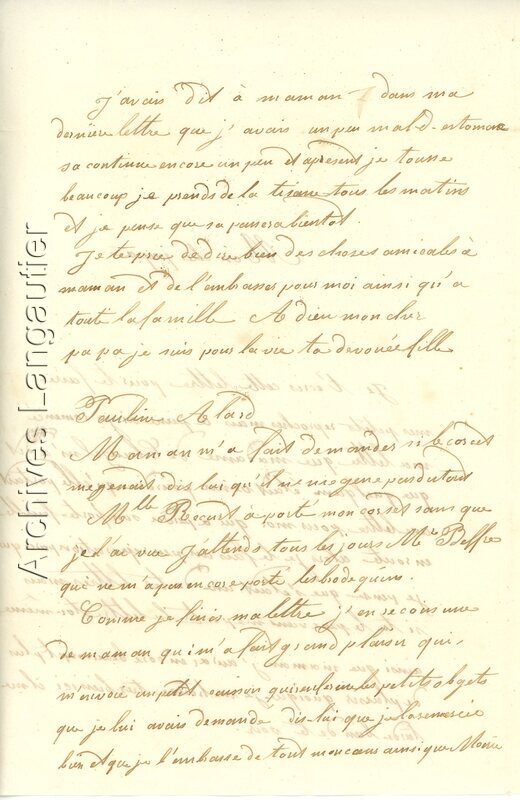 J'avais dit à maman dans ma
dernière lettre que j'avais un peu mal d'estomac
sa continue encore un peu et apresent je tousse
beaucoup je prends de la tisane tous les matins
et je pense que sa passera bientot.
Je te prie de dire bien des choses amicales à
maman et de l'embrasser pour moi ainsi qu'a
toute la famille Adieu mon cher
papa je suis pour la vie ta devouée fille
Pauline Alard
Maman m'a fait demander si le corset
me genait dis lui qu'il ne me gene pas du tout
Mlle a porté mon corset sans que
je l'ai vue J'attends tous les jours Mr
que ne m'a pas encore porté les brodequins.
Comme je finis ma lettre j'en recois une
de maman qui m'a fait grand plaisir qui
m'envoie un petit qui renferme les petits objets
que je lui avais demandé dis lui que je la remercie
bien et que je l'embrasse de tout mon coeur ainsi que
Archives Langautier